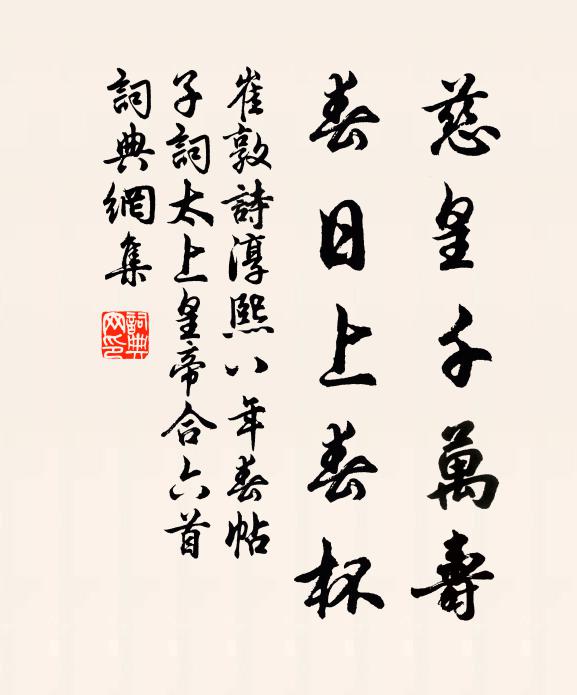 慈皇千萬壽
春日上春杯
崔敦詩淳熙八年春帖
子詞太上皇帝合六首
詞典網集
詞典網印